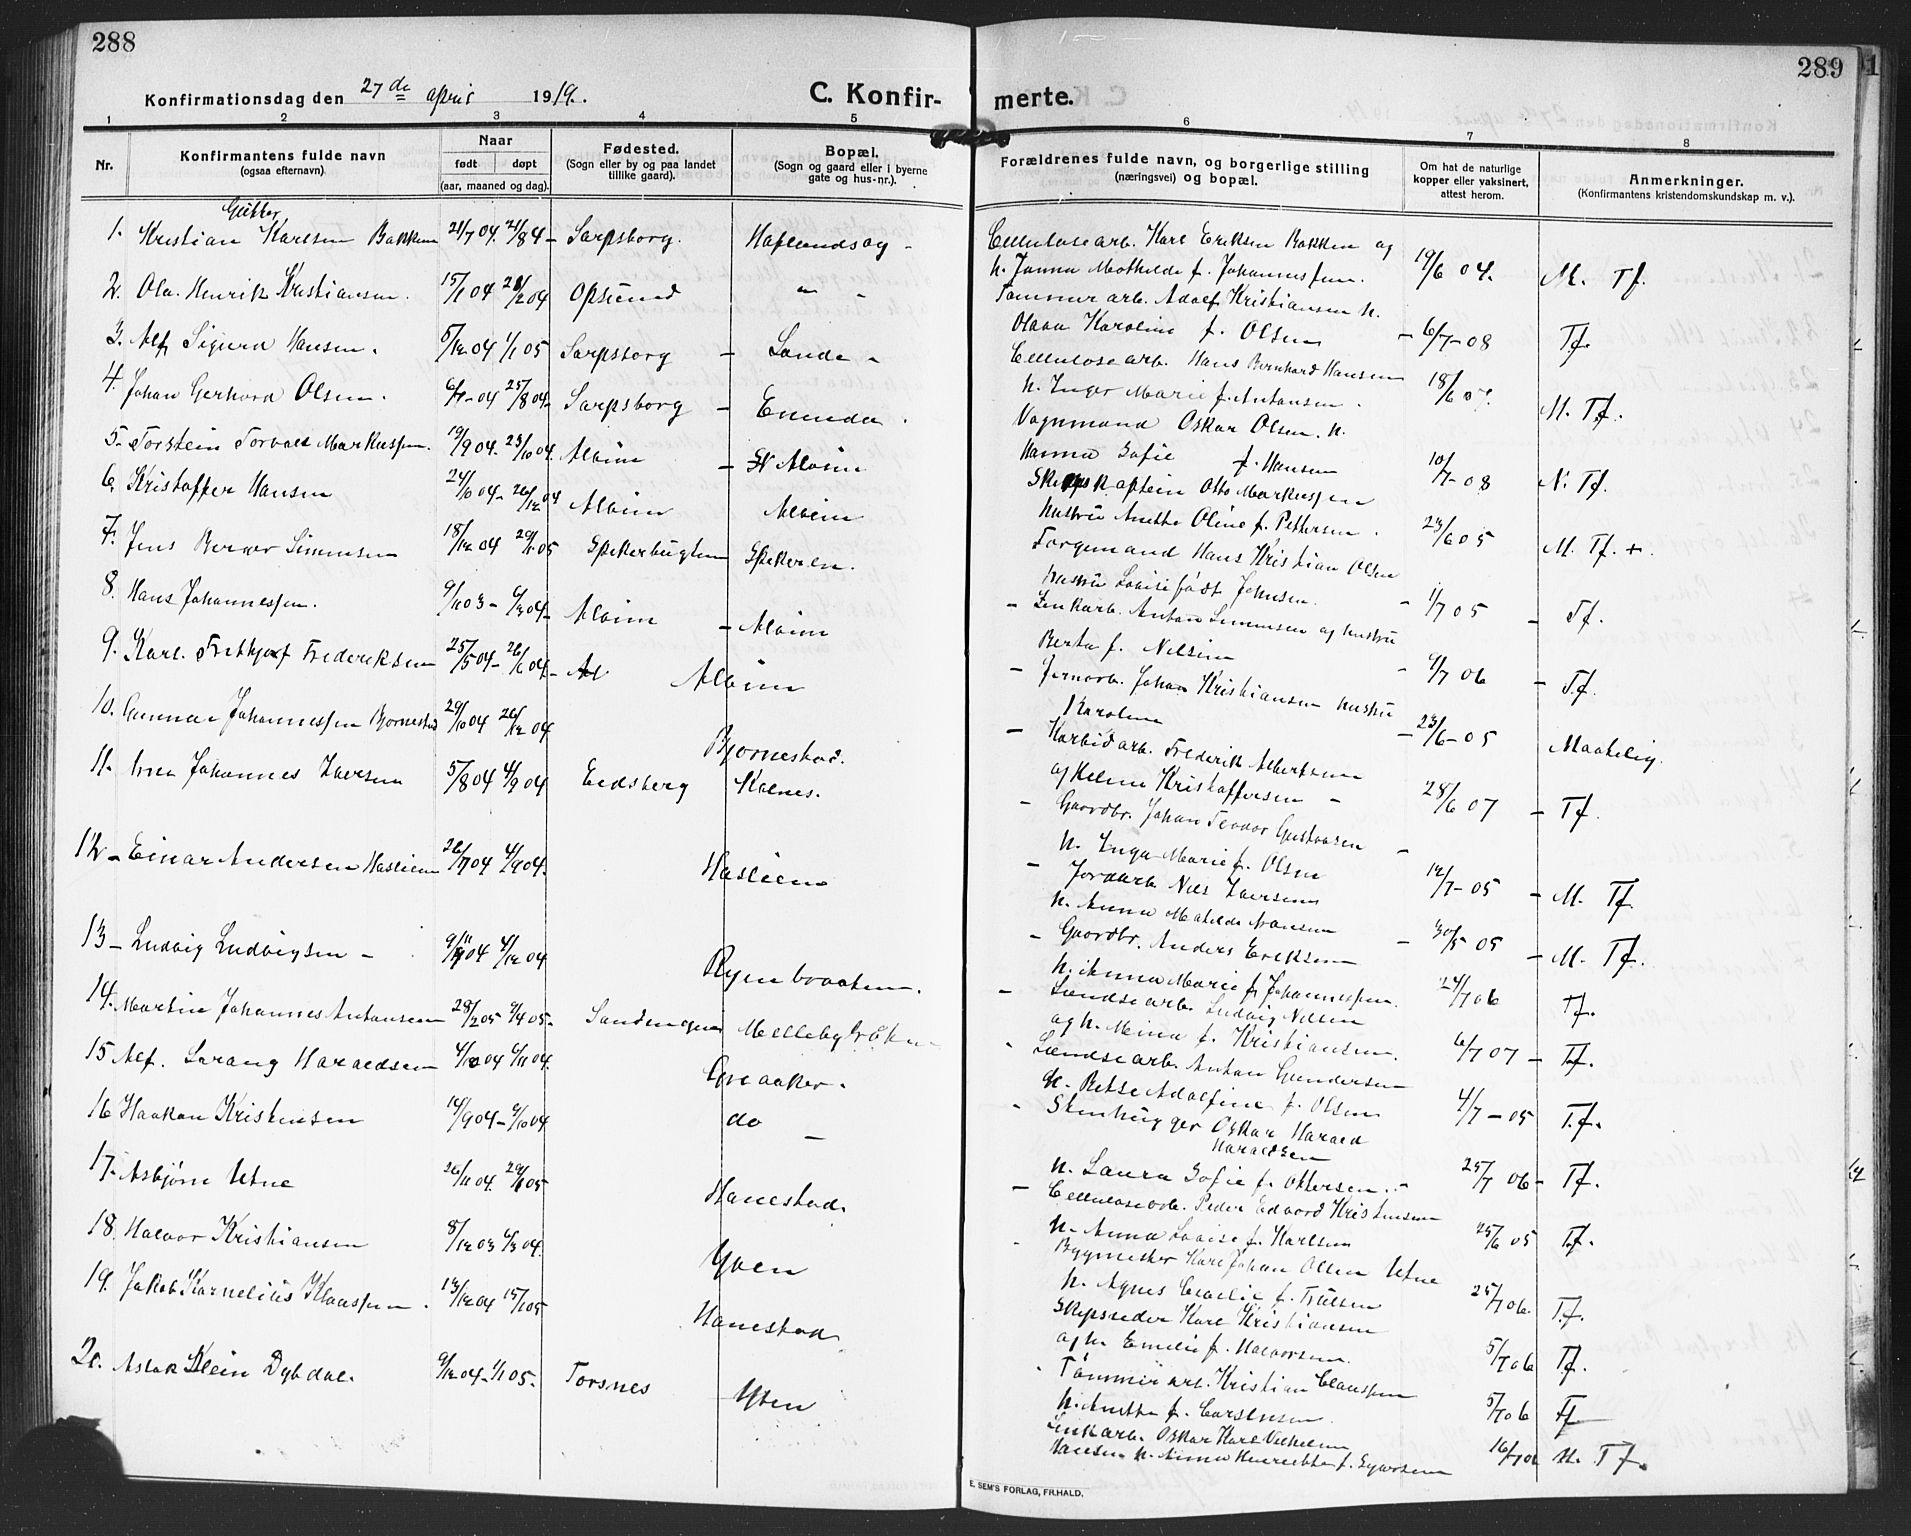 288
Konfirmationsdag den 27de april 1919.
C. Konfir-
1 2 3 4 5
Nr.
Konfirmantens fulde navn
(ogsaa efternavn)
Naar
født døpt
(aar, maaned og dag).
Fødested.
(Sogn eller by og paa landet
tillike gaard).
Bopæl.
(Sogn og gaard eller i byerne
gate og hus-nr.).
Gutter
1. Kristian Karlsen Bakken 21/7 04. 21/8 4 - Sarpsborg. Haflundsøy -
2. Ola Henrik Kristiansen. 15/1 04 Opsund " -
3. Alf Sigurd Hansen. 5/12 04 1/1 05 Sarpsborg - Lande -
4. Johan Gerhard Olsen. 6/7-04 25/8 04- Sarpsborg -
5- Torstein Torvald Markussen. 19/9 04. 23/10 04. Alvim - Alvim
6. Kristoffer Hansen 24/10 04- 26/12 04 Alvim Alvim
7. Jens Simensen 18/12 04 29/1 05 Spekerbugten Spekeren.
8. Hans Johannessen. 9/11 03 - 6/3 04- Alvim - Alvim
9. Karl Frithjof Frederiksen 25/5 04- 26/6 04- Al Alvim
10. Gunnar Johannessen Bjørnestad 29/10 04 26/12 04 Bjørnestad.
11. Johannes Iversen 5/8 04 4/9 04 Eidsberg Kalnes.
12 - Einar Andersen Hasleien 26/7 04 4/9 04. Hasleien
13 - Ludvig Ludvigsen - 9/11 04 4/12 04 Ryenbraaten.
14. Martin Johannes Antonsen 28/2 05 9/4 05-
15 Alf Haraldsen 4/10 04 6/11 04. Greaaker.
16 Haakon Kristensen 14/9 04- 9/10 04 do -
17. Asbjørn Utne 26/11 04. 29/1 05 Hanestad.
18. Halvor Kristiansen 8/12 03 6/3 04. Yven
19. Jakob Kornelius Klaussen. 13/12 04 15/1 05 Hanestad
20. Aslak Klein Dybdal. 9/12 04- 1/1 05- Torsnes Yven
289
merte.
6 7 8
Forældrenes fulde navn, og borgerlige stilling
(næringsvei) og bopæl.
Om hat de naturlige
kopper eller vaksinert,
attest herom.
Anmerkninger.
(Konfirmantens kristendomskundskap m. v.).
Cellulosearb. Karl Eriksen Bakken og
h. Janna Mathilde f. Johannessen. 19/6 04. M. Tf.
Tømmerarb. Adolf Kristiansen h.
Olava Karoline f. Olsen - 6/7-08 Tf.
Cellulosearb. Hans Bernhard Hansen
h. Inger Marie f. Antonsen. M. Tf.
Vognmand Oskar Olsen. h.
Hanna Sofie f. Hansen 10/7-08 N. Tf.
Skipskaptein Otto Markussen
hustru Anette Oline f. Pettersen. 23/6 05 M. Tf. +.
Færgemand Hans Kristian Olsen
hustru Lovise født Johnsen. - 1/7 05 - Tf.
- Zinkarb. Anton Simensen og hustru
Berta f. Nilsen - 9/7 06 - Tf.
- Jernarb. Johan Kristiansen hustru
Karoline - 23/6-05 Maatelig.
- Karbidarb. Frederik Albertsen
og Helene Kristoffersen - 28/6 07 - Tf.
- Gaardbr. Johan Teodor Gustavsen -
h. Inga Marie f. Olsen 12/7-05 - M. Tf.
- Jordarb. Nils Iversen
h. Anna Matilde Hansen - 30/5 05 - M. Tf.
- Gaardbr. Anders Eriksen
h. Anna Marie f. Johannessen. 24/7 06 Tf.
- Lændsearb. Ludvig Nilsen
og h. Mina f. Kristiansen. 6/7 07 - Tf.
- Lændsearb. Anton Gundersen
h. Betse Adolfine f. Olsen 4/7-05 T.f.
- Stenhugger Oskar Harald
Haraldsen
h. Laura Sofie f. Ottersen. - 25/7 06 - Tf.
- Cellulosearb. Peder Edvard Kristensen
h. Anna Lovise f. Karlsen 25/6 05 Tf.
- Bygmester Karl Johan Olsen Utne
h. Agnes Cecilie f. Trulsen 25/7 06. T.f.
Skipsreder Karl Kristiansen
og h. Emilie f. Halvorsen. 5/7 06 Tf.
- Tømmerarb. Kristian Claussen
h. Anette f. Carlsensen. 5/7 06 Tf
Zinkarb. Oskar Karl Vilhelm
Hansen h. Anna Henriette f. Syversen 16/7 06 M. Tf.
E. SEM'S FORLAG, FR.HALD.